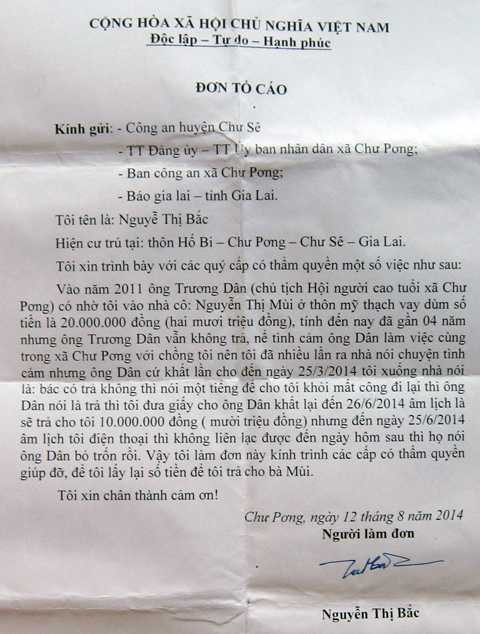 CỘNG HÒA XÃ HỘI CHỦ NGHĨA VIỆT NAM
Độc lập – Tự do – Hạnh phúc
ĐƠN TỐ CÁO
Kính gửi: - Công an huyện Chư Sê
- TT Đảng ủy – TT Ủy ban nhân dân xã Chư Pơng;
- Ban công an xã Chư Pơng;
- Báo gia lai – tỉnh Gia Lai.
Tôi tên là: Nguyễ Thị Bắc
Hiện cư trú tại: thôn Hố Bi – Chư Pơng – Chư Sê – Gia Lai.
Tôi xin trình bày với các quý cấp có thẩm quyền một số việc như sau:
Vào năm 2011 ông Trương Dân (chủ tịch Hội người cao tuổi xã Chư
Pơng) có nhờ tôi vào nhà cô: Nguyễn Thị Mùi ở thôn mỹ thạch vay dùm số
tiền là 20.000.000 đồng (hai mươi triệu đồng), tính đến nay đã gần 04 năm
nhưng ông Trương Dân vẫn không trả, nể tình cảm ông Dân làm việc cùng
trong xã Chư Pơng với chồng tôi nên tôi đã nhiều lần ra nhà nói chuyện tình
cảm nhưng ông Dân cứ khất lần cho đến ngày 25/3/2014 tôi xuống nhà nói
là: bác có trả không thì nói một tiếng để cho tôi khỏi mất công đi lại thì ông
Dân nói là trả thì tôi đưa giấy cho ông Dân khất lại đến 26/6/2014 âm lịch là
sẽ trả cho tôi 10.000.000 đồng ( mười triệu đồng) nhưng đến ngày 25/6/2014
âm lịch tôi điện thoại thì không liên lạc được đến ngày hôm sau thì họ nói
ông Dân bỏ trốn rồi. Vậy tôi làm đơn này kính trình các cấp có thẩm quyền
giúp đỡ, để tôi lấy lại số tiền để tôi trả cho bà Mùi.
Tôi xin chân thành cảm ơn!
Chư Pơng, ngày 12 tháng 8 năm 2014
Người làm đơn
Nguyễn Thị Bắc